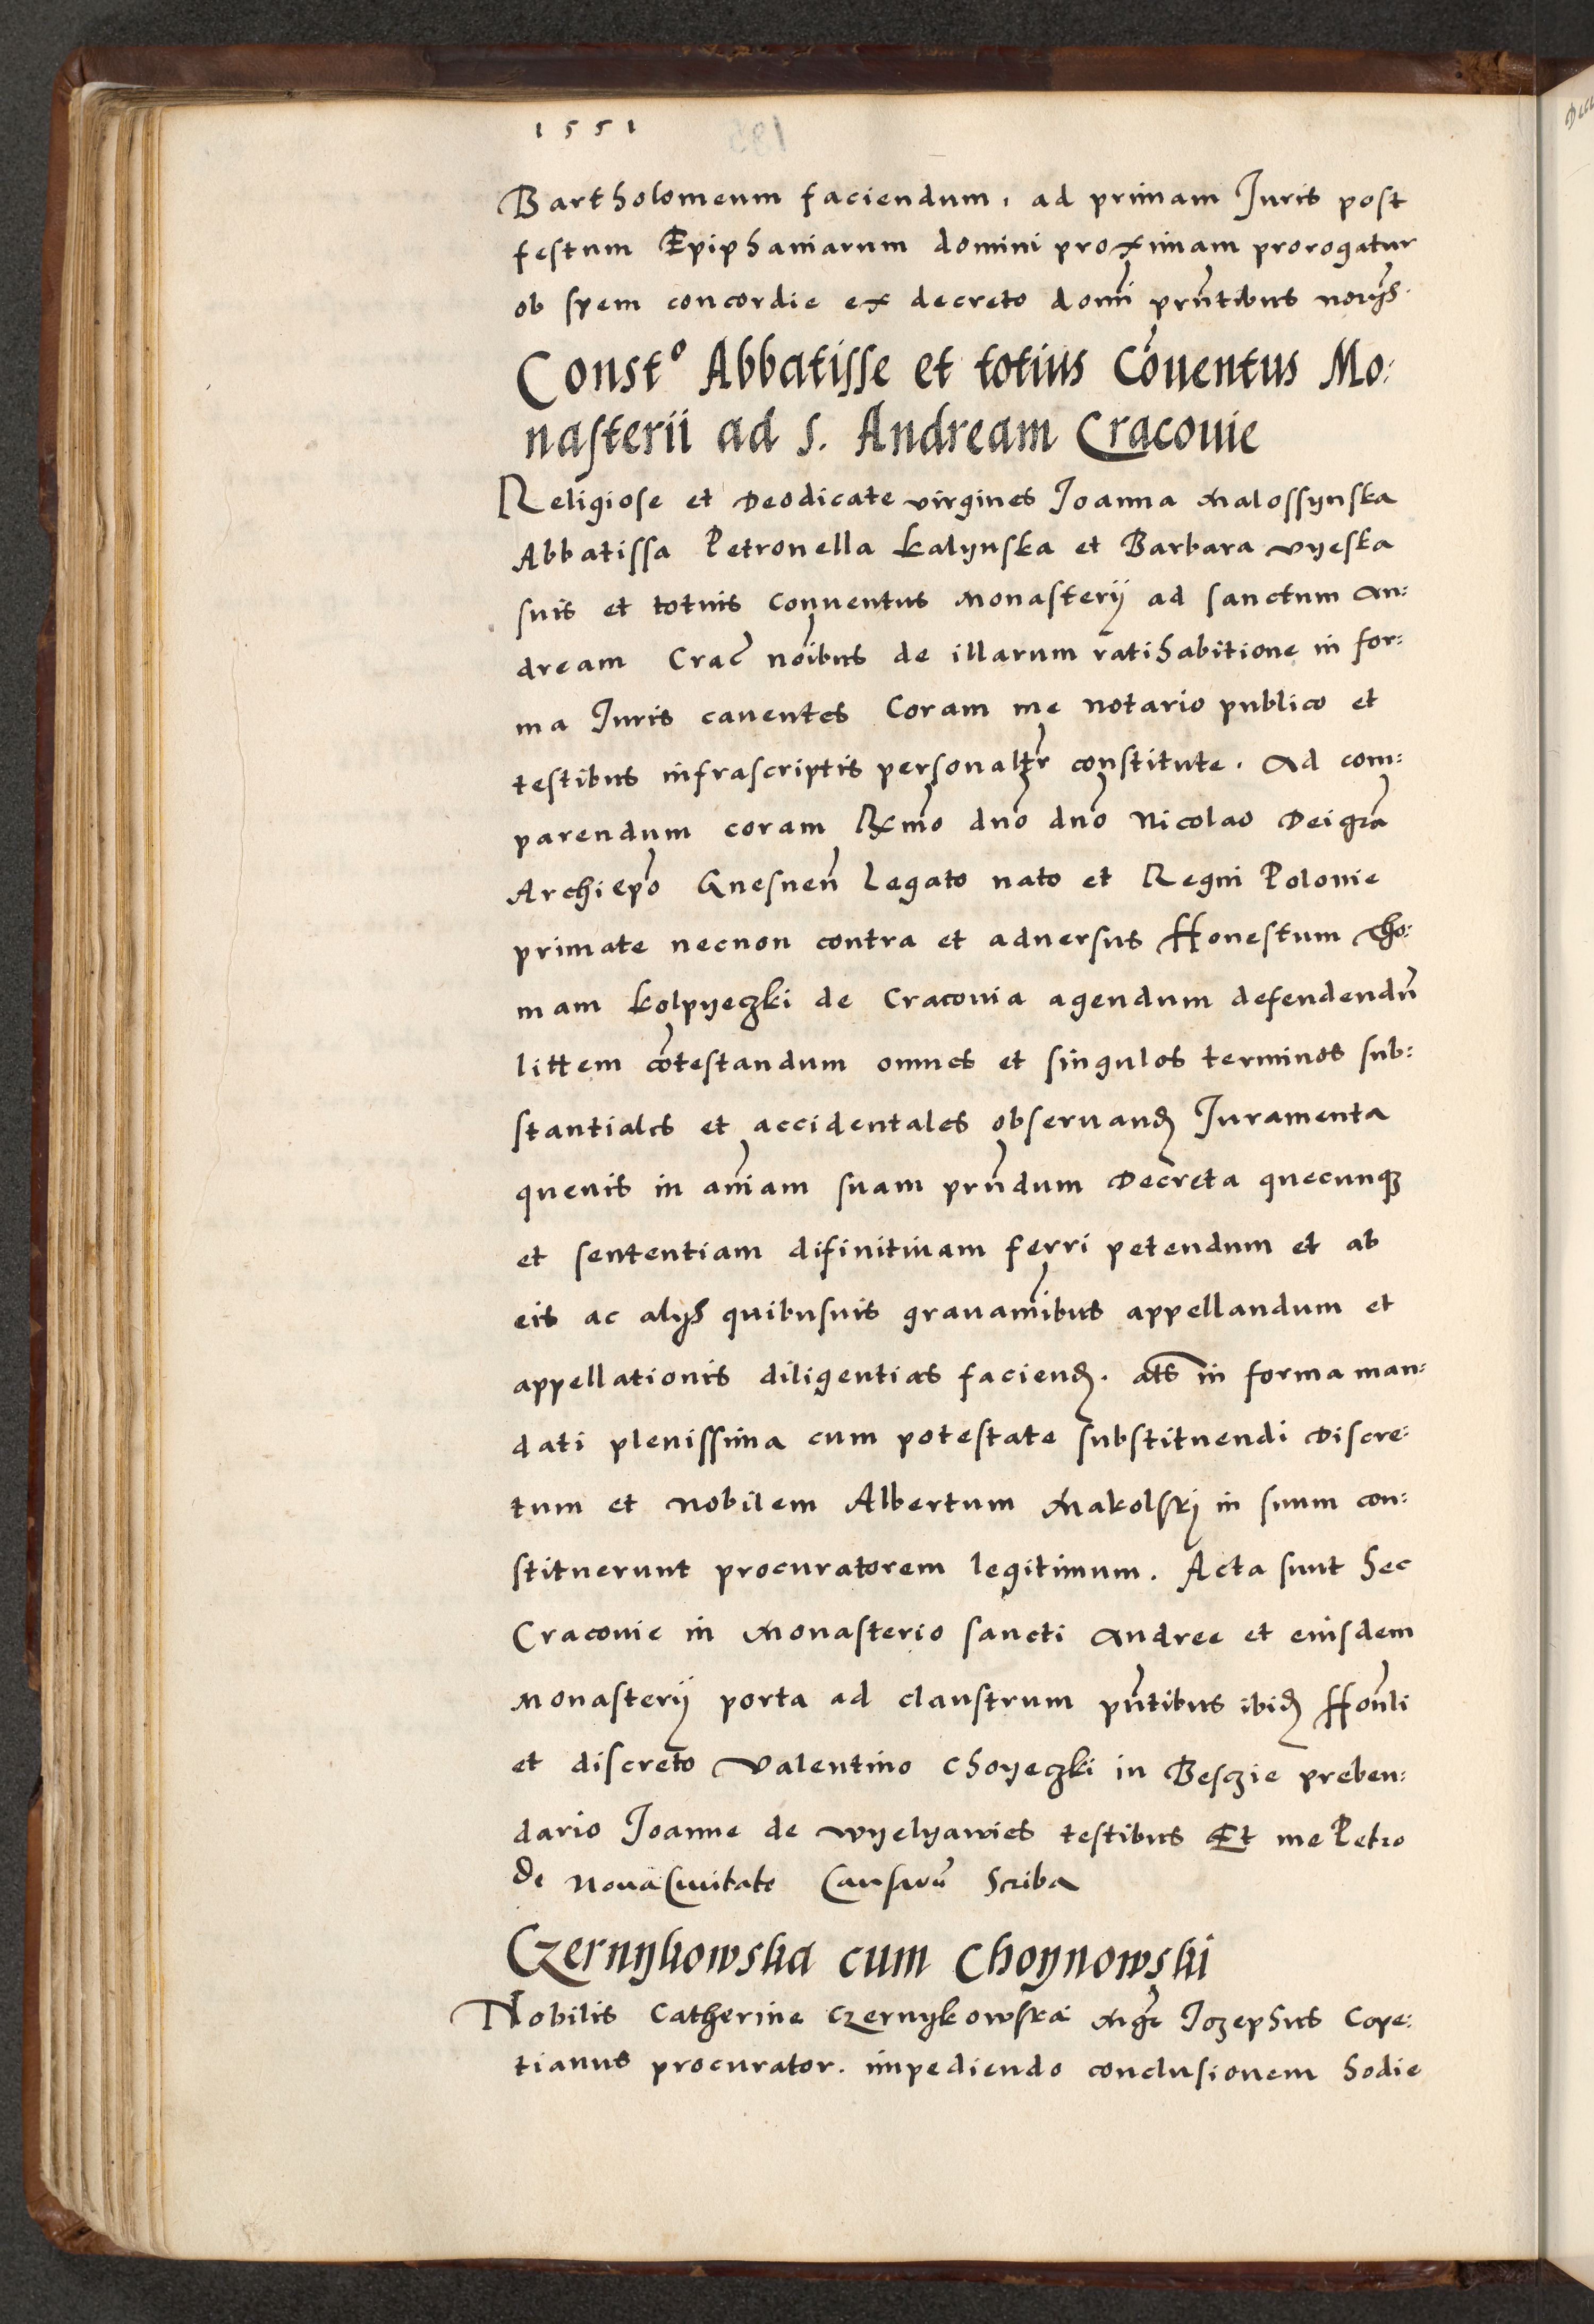 1551
Bartholomeum faciendum, ad primam Iuris post
festum Epiphaniarum domini proximam prorogatur
ob spem concordie ex decreto domi͂ prn͂tibus norys͂.
Constº Abbatisse et totius Cōuentus Mo:
nasterii ad S. Andream Cracouie
Religiose et Deodicate virgines Ioanna Malossynska
Abbatissa Petronella kalynska et Barbara vyeska
suis et totius conuentus Monasterij ad sanctum An:
dream Crac͂ noi͂bus de illarum ratihabitione in for:
ma Iuris cauentes Coram me Notario publico et
testibus infrascriptis personaltr͂ constitute. Ad com:
parendum coram Rxmo dno͂ dno͂ Nicolao Dei gra͂
Archiepo͂ Gnesnen͂ Legato nato et Regni Polonie
primate necnon contra et aduersus Honestum Tho:
mam kolpyeczki de Cracouia agendum defendendu͂
littem co͂testandum omnes et singulos terminos sub:
stantiales et accidentales obseruand Iuramenta
queuis in ani͂am suam prn͂dum Decreta quecunq;
et sententiam difinitiuam ferri petendum et ab
eis ac alijs quibusuis grauami͂bus appellandum et
appellationis diligentias faciend. als͂ in forma man:
dati plenissima cum potestate substituendi Discre:
tum et Nobilem Albertum Makolskj in suum con:
stituerunt procuratorem legitimum. Acta sunt hec
Cracouie in Monasterio sancti Andree et eiusdem
Monasterij porta ad claustrum pn͂tibus ibid Hon͂li
et discreto Valentino Choyeczki in Besczie preben:
dario Ioanne de wyelyawies testibus Et me Petro
De Noua Ciuitate Causaru͂ Scriba
Czernykowska cum Choynowski
Nobilis Catherine Czernykowska Mgr͂ Iozephus Cope:
tianus procurator. impediendo conclusionem hodie